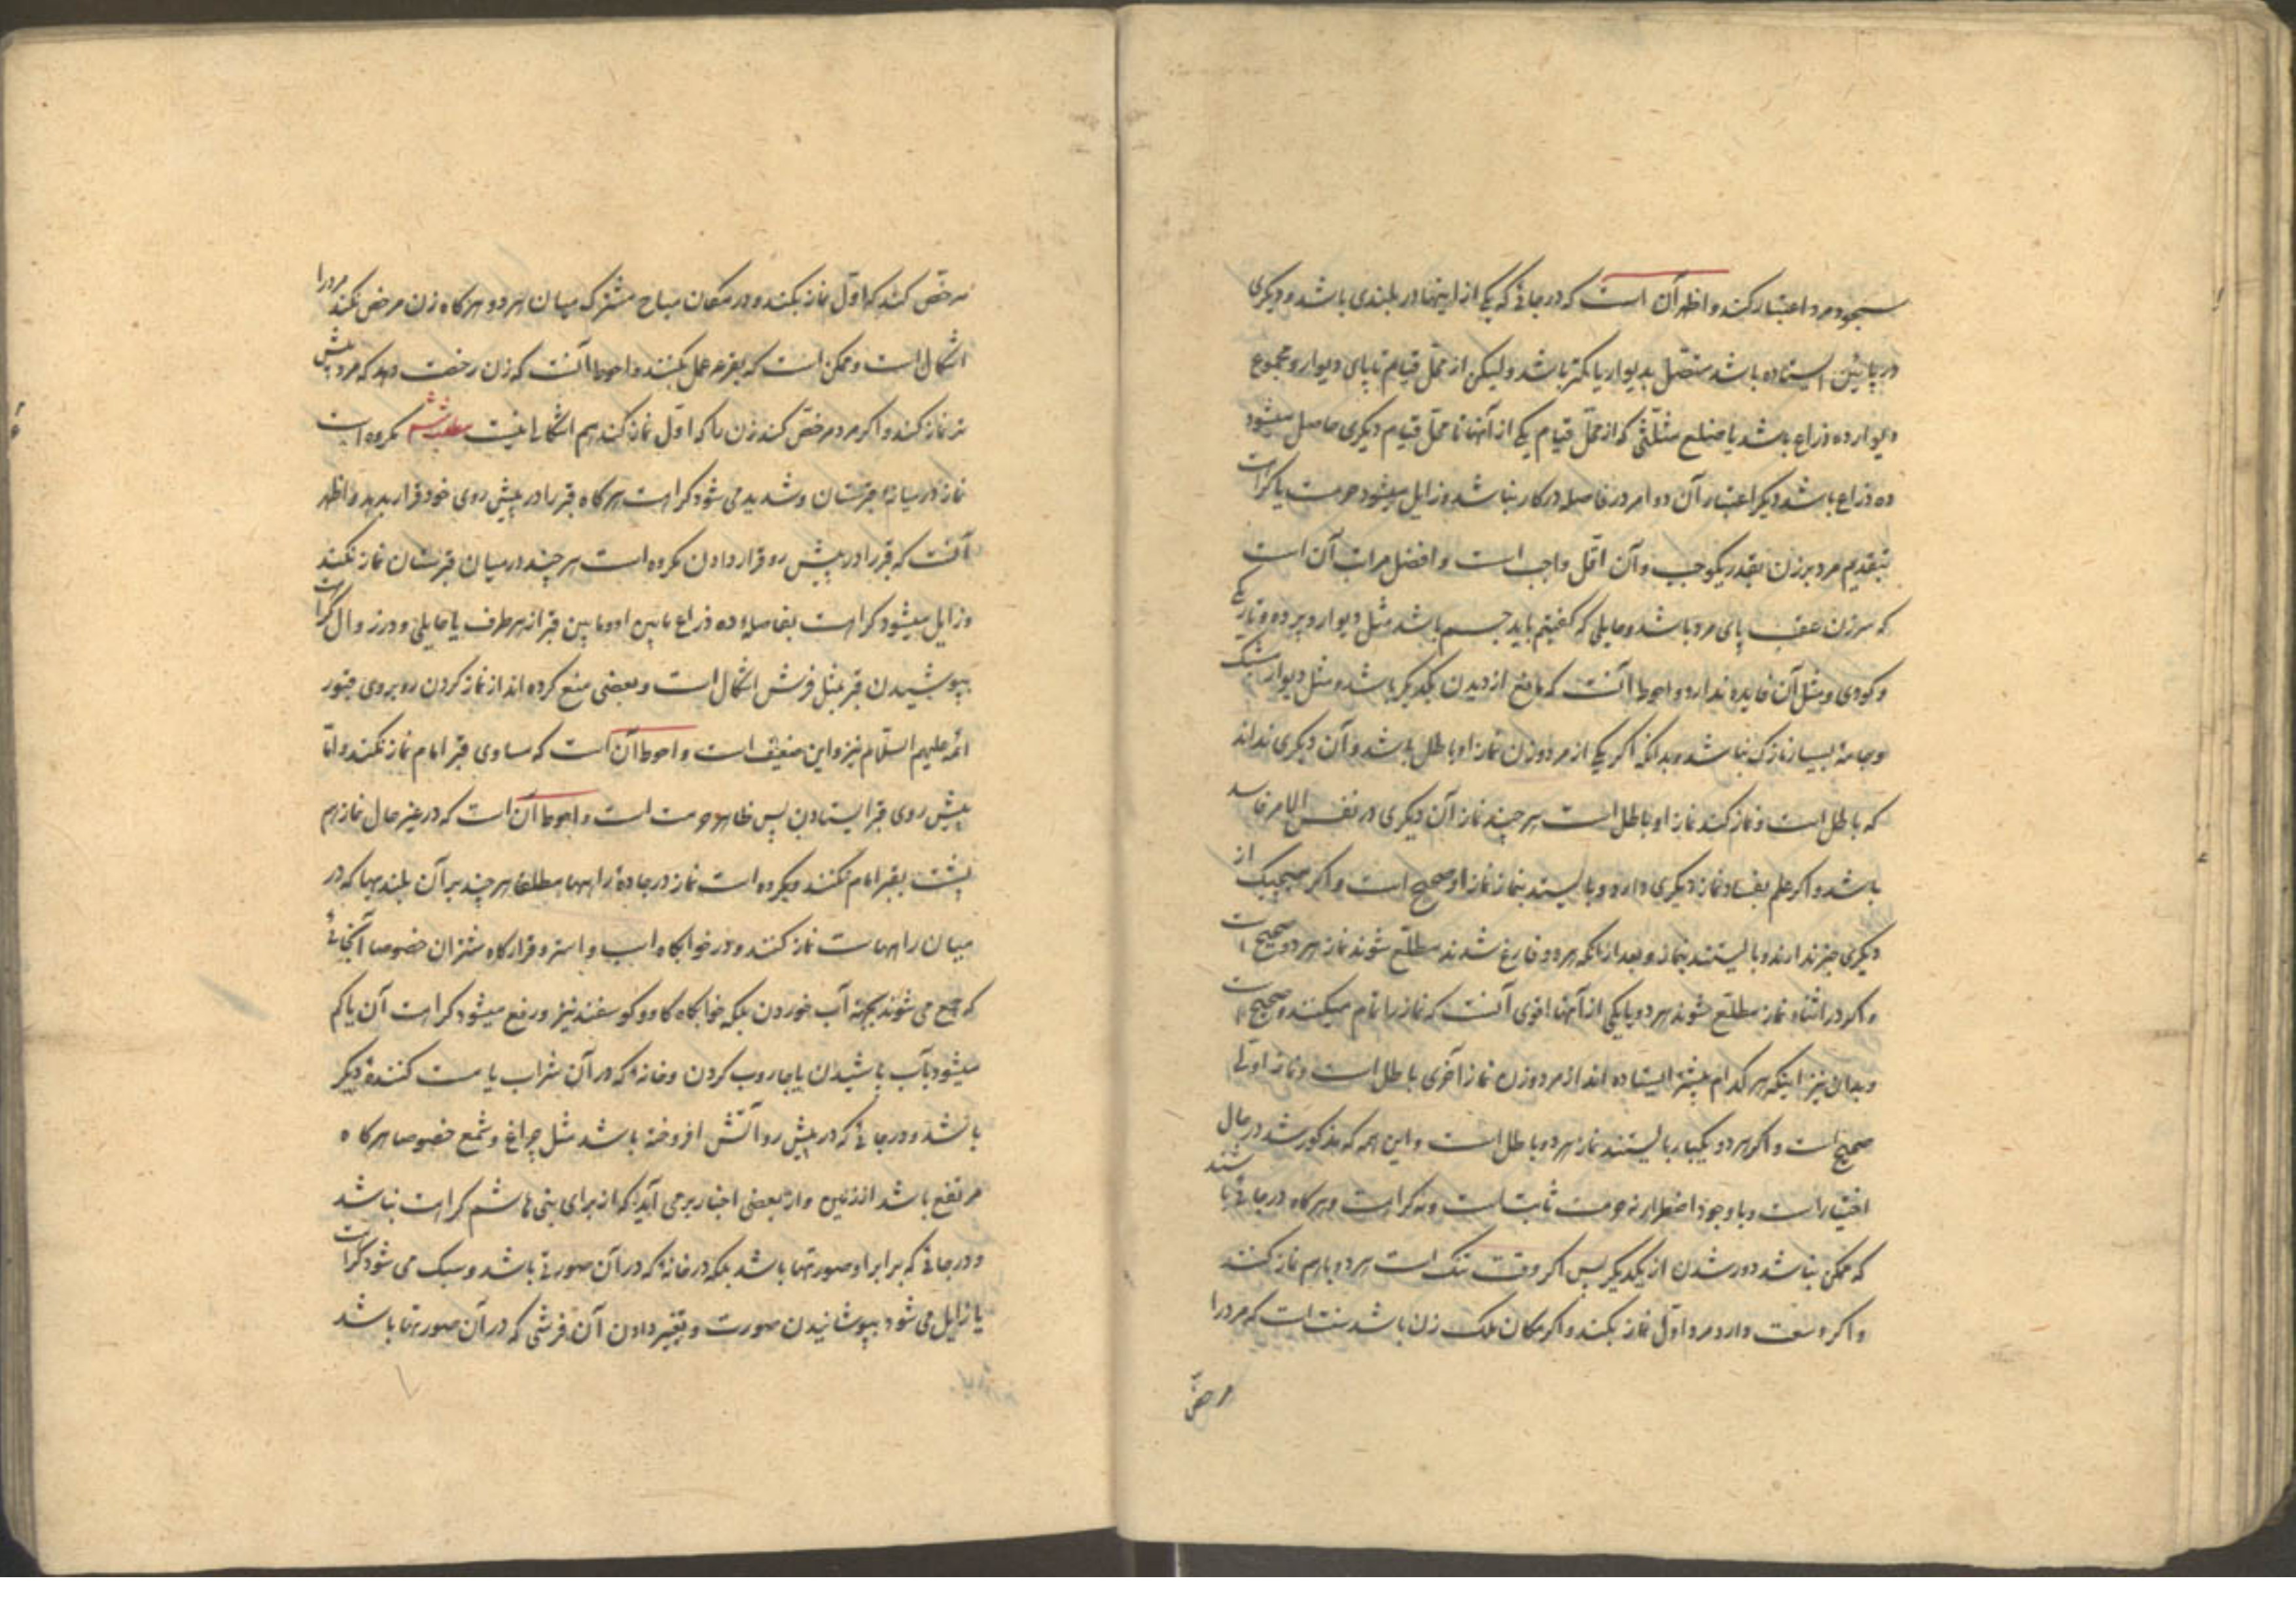 سجود مرد اعتبار کند و اظهر آن است که در جائی که یکی از اینها در بلندی باشد و دیگری
در پائین ایستاده باشد متصل بدیوار یا کمتر باشد و لیکن از محل قیام تا پای دیوار و مجموع
دیوار ده ذراع باشد یا ضلع مثلثی که از محل قیام یکی از آنها تا محل قیام دیگری حاصل میشود
ده ذراع باشد دیگر اعتبار آن دو امر در فاصله در کار نباشد و زایل میشود حرمت یا کراهت
بتقدیم مرد بر زن بقدر یکوجب و آن اقل واجب است و افضل مراتب آن است
که سر زن عقب پای مرد باشد و حایلی که گفتیم باید جسم باشد مثل دیوار و پرده و تاریکی
و کوری و مثل آن فایده ندارد و احوط آنست که مانع از دیدن یکدیگر باشد و مثل دیوار مشبک
و جامهٔ بسیار نازک نباشد و بدانکه اگر یکی از مرد و زن نماز او باطل باشد و آن دیگری نداند
که باطل است و نماز کند نماز او باطل است هر چند نماز آن دیگری در نفس الامر فاسد
باشد و اگر علم بفساد نماز دیگری دارد و بایستد بنماز نماز او صحیح است و اگر هیچیک از
دیگری خبر ندارند و بایستند بنماز و بعد از آنکه هر دو فارغ شدند مطلع شوند نماز هر دو صحیح است
و اگر در اثناء نماز مطلع شوند هر دو یا یکی از آنها اقوی آنست که نماز را تمام میکنند و صحیح است
و بدان نیز اینکه هر کدام پیشتر ایستاده اند از مرد و زن نماز آخری باطل است و نماز اولی
صحیح است و اگر هر دو یکبار بایستند نماز هر دو باطل است و این همه که مذکور شد در حال
اختیار است و با وجود اضطرار نه حرمت ثابت است و نه کراهت و هر گاه در جائی باشند
که ممکن نباشد دور شدن از یکدیگر پس اگر وقت تنگ است هر دو با هم نماز کنند
و اگر وسعت دارد مرد اول نماز بکند و اگر مکان ملک زن باشد سنت است که مرد را
مرخص
مرخص کند که اول نماز بکند و در مکان مباح مشترک میان هر دو هر گاه زن مرخص نکند مرد را
اشکال است و ممکن است که بقرعه عمل بکنند و احوط آنست که زن رخصت دهد که مرد پیش
تر نماز کند و اگر مرد مرخص کند زن را که اول نماز کند هم اشکالی نیست مطلب ششم مکروه است
نماز در میانهٔ قبرستان و شدید می شود کراهت هر گاه قبر را در پیش روی خود قرار بدهد و اظهر
آنست که قبر را در پیش رو قرار دادن مکروه است هر چند در میان قبرستان نماز نکند
و زایل میشود کراهت بفاصلهٔ ده ذراع مابین او و مابین قبر از هر طرف یا حایلی و در زوال کراهت
بپوشیدن قبر بمثل فرش اشکال است و بعضی منع کرده اند از نماز کردن رو بروی قبور
ائمه علیهم السلام نیز و این ضعیف است و احوط آن است که مساوی قبر امام نماز نکند و اما
پیش روی قبر ایستادن پس ظاهر حرمت است و احوط آن است که در غیر حال نماز هم
پشت بقبر امام نکنند و مکروه است نماز در جادهٔ راهها مطلقا هر چند بر آن بلندیها که در
میان راههاست نماز کنند و در خوابگاه اسب و استر و قرارگاه شتران خصوصا آنجائی
که جمع می شوند بجهة آب خوردن بلکه خوابگاه گاو و گوسفند نیز و رفع میشود کراهت آن یا کم
میشود بآب پاشیدن یا جاروب کردن و خانهٔ که در آن شراب یا مست کنندهٔ دیگر
باشد و در جائی که در پیش رو آتش افروخته باشد مثل چراغ و شمع خصوصا هر گاه
مرتفع باشد از زمین و از بعضی اخبار بر می آید که از برای بنی هاشم کراهت نباشد
و در جائی که برابر او صورتها باشد بلکه در خانهٔ که در آن صورتی باشد و سبک می شود کراهت
یا زایل می شود بپوشانیدن صورت و تغییر دادن آن و فرشی که در آن صورتها باشد